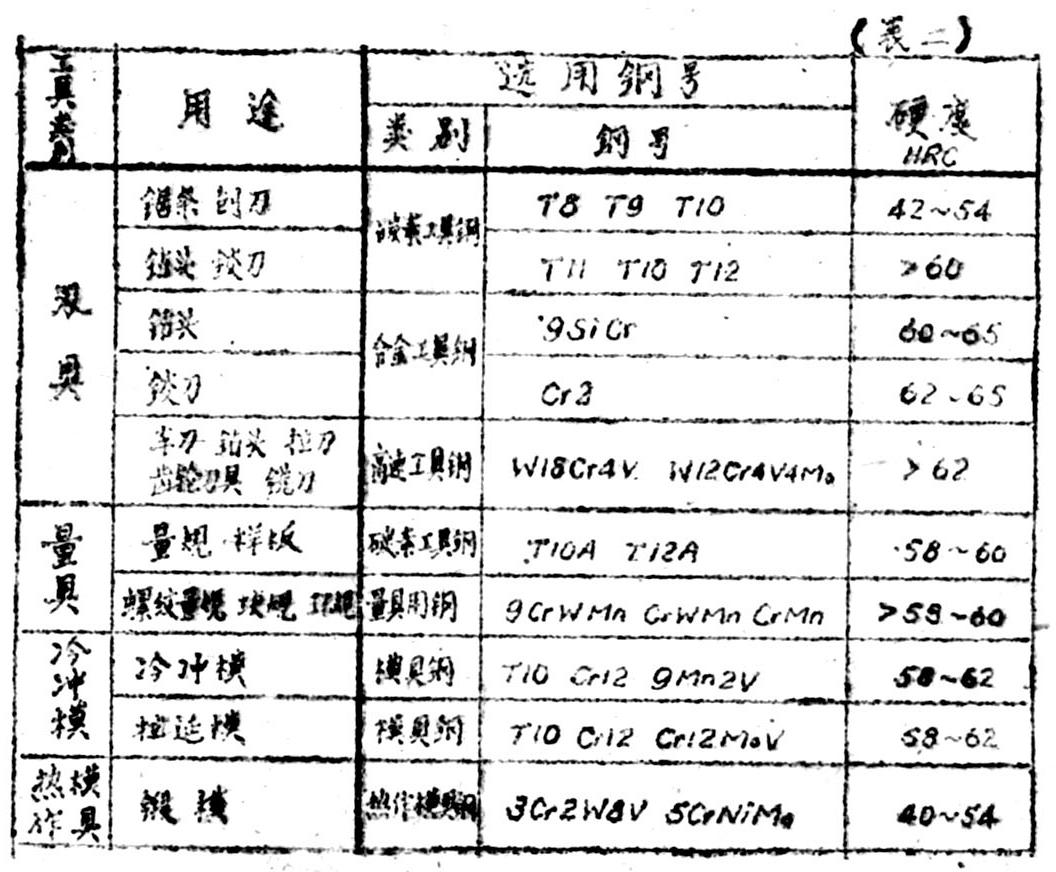 (表二)
工具类别 用途 选用鋼号 硬度 HRC
类别 鋼号
刃具 鋸条 刮刀 碳素工具鋼 T8 T9 T10 42~54
鉆头 鉸刀 T11 T10 T12 >60
鉆头 合金工具鋼 9SiCr 60~65
鉸刀 Cr2 62~65
車刀 鉆头 拉刀
齿轮刀具 銑刀 高速工具鋼 W18Cr4V W12Cr4V4Mo >62
量具 量規 样板 碳素工具鋼 T10A T12A 58~60
螺纹量規 块規 环規 量具用钢 9CrWMn CrWMn CrMn >58~60
冷冲模 冷冲模 模具鋼 T10 Cr12 9Mn2V 58~62
拉延模 模具鋼 T10 Cr12 Cr12MoV 58~62
热作模具 鍛模 热作模具鋼 3Cr2W8V 5CrNiMo 40~54